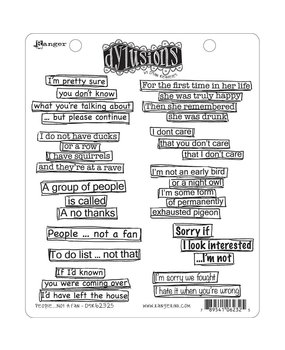 Ranger
dylusions
I'm pretty sure
you don't know
what you're talking about
... but please continue
I do not have ducks
or a row
I have squirrels
and they're at a rave
A group of people
is called
A no thanks
People ... not a fan
To do list ... not that
If I'd known
you were coming over
I'd have left the house
For the first time in her life
she was truly happy
Then she remembered
she was drunk
I dont care
that you don't care
that I don't care
I'm not an early bird
or a night owl
I'm some form
of permanently
exhausted pigeon
Sorry if
I look interested
...I'm not
I'm sorry we fought
I hate it when you're wrong
PEOPLE...NOT A FAN - DYR62325
WWW.RANGERINK.COM
7 89541 06232 1